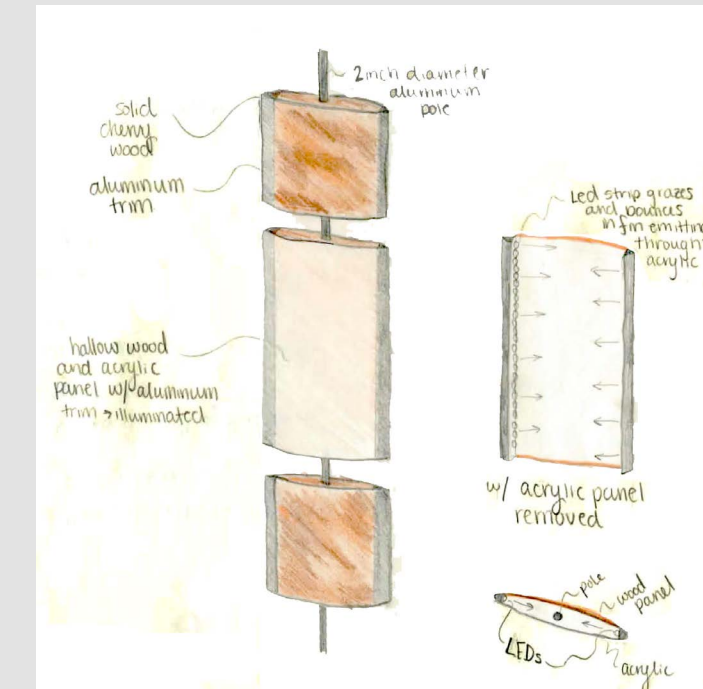 2inch diameter
aluminium
pole
solid
cherry
wood
aluminum
trim
hallow wood
and acrylic
panel w/ aluminum
trim → illuminated
Led strip grazes
and bounces
in fm emitting
through
acrylic
w/ acrylic panel
removed
pole
wood
panel
LEDs
acrylic